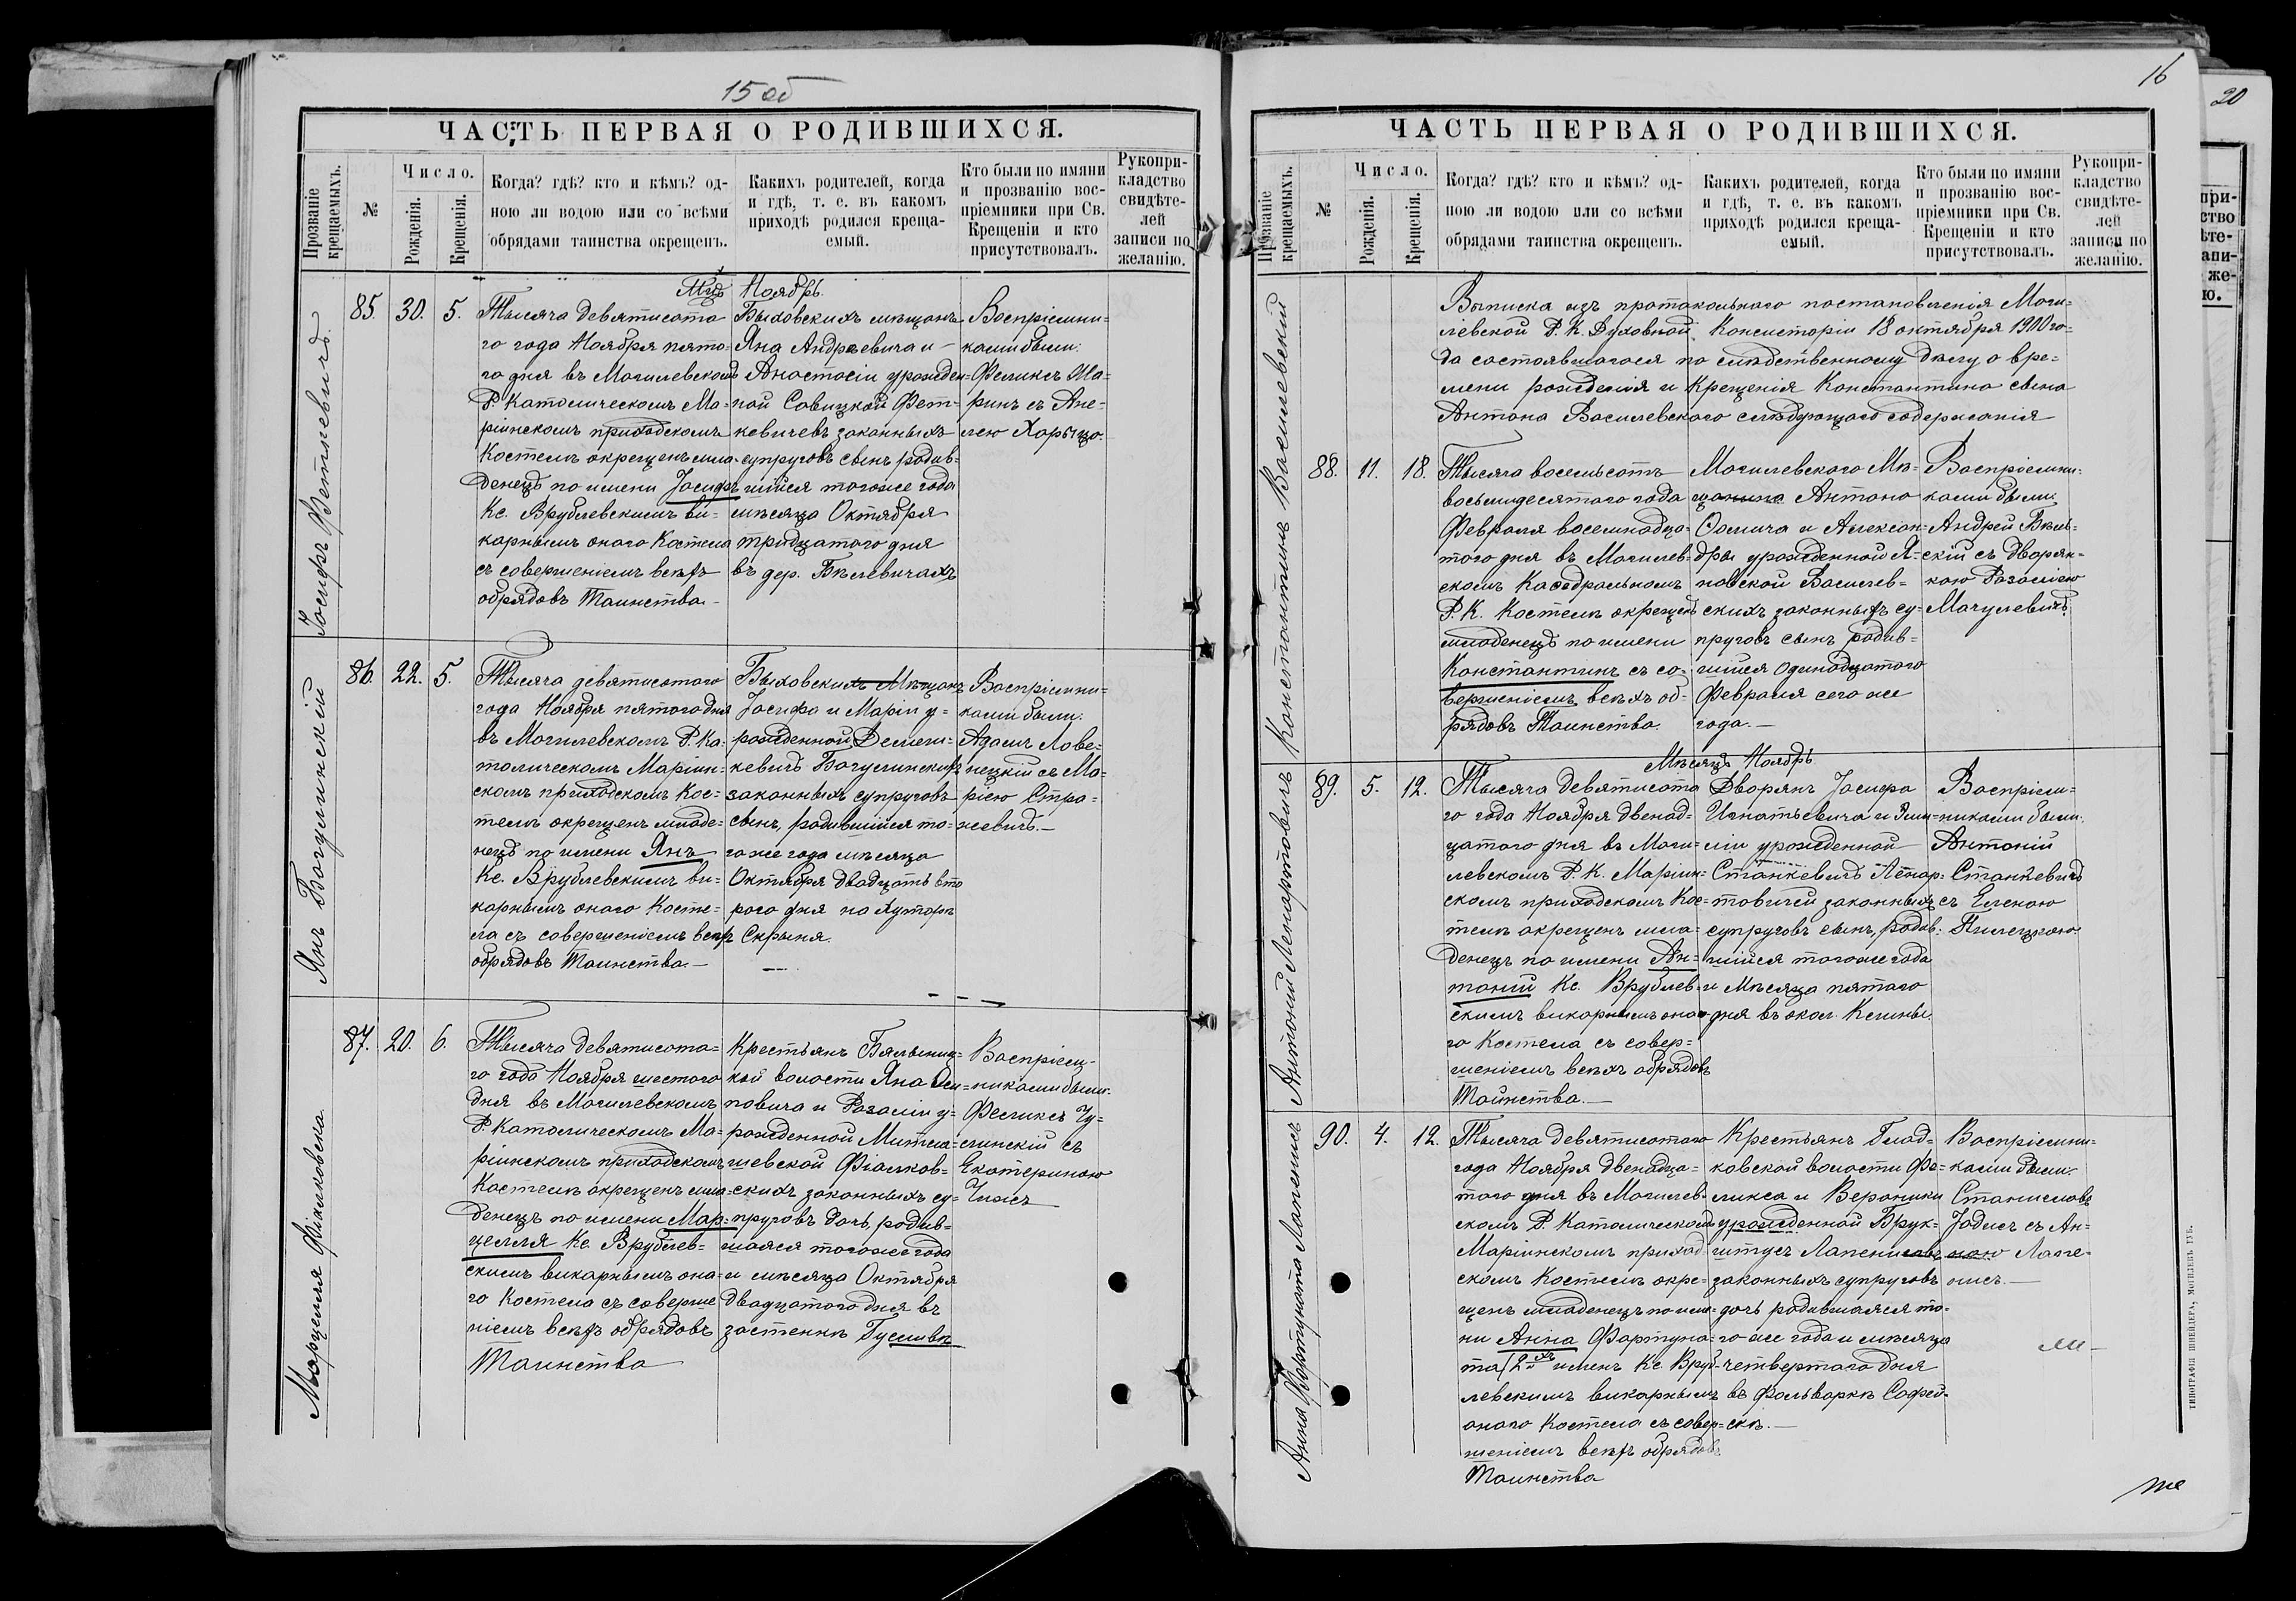 15 об
ЧАСТЬ ПЕРВАЯ О РОДИВШИХСЯ.
Прозваніе крещаемыхъ.
№
Число.
Рожденія.
Крещенія.
Когда? гдѣ? кто и кѣмъ? од-
ною ли водою или со всѣми
обрядами таинства окрещенъ.
Какихъ родителей, когда
и гдѣ, т. е. въ какомъ
приходѣ родился креща-
емый.
Кто были по имяни
и прозванію вос-
пріемники при Св.
Крещеніи и кто
присутствовалъ.
Рукопри-
кладство
свидѣте-
лей
записи по
желанію.
Мцъ Ноябрь.
Іосифъ Феткевичъ.
85. 30. 5.
Тысяча девятисота
го года Ноября пято-
го дня въ Могилевскомъ
Р. Католическомъ Ма-
ріинскомъ приходскомъ
Костелѣ окрещенъ мла-
денецъ по имени Іосифъ
Кс. Врублевскимъ ви-
карнымъ онаго Костела
съ совершеніемъ всѣхъ
обрядовъ Таинства.
Быховскихъ мѣщанъ
Яна Андреевича и
Анастасіи урожден-
ной Савицкой Фет-
кевичевъ законныхъ
супруговъ сынъ, родив-
шійся тогоже года
мѣсяца Октября
тридцатого дня
въ дер. Бѣлевичахъ
Воспріемни-
ками были:
Феликсъ Ма-
ринъ съ Ане-
лею Харыцо.
Янъ Богуслинскій
86. 22. 5.
Тысяча девятисотаго
года Ноября пятого дня
въ Могилевскомъ Р. Ка-
толическомъ Маріин-
скомъ приходскомъ Кос-
телѣ окрещенъ младе-
нецъ по имени Янъ
Кс. Врублевскимъ ви-
карнымъ онаго Косте-
ла съ совершеніемъ всѣхъ
обрядовъ Таинства.—
Быховскихъ Мѣщанъ
Іосифа и Маріи у-
рожденной Демени-
кевичъ Богуслинскихъ
законныхъ супруговъ
сынъ, родившійся то-
гоже года мѣсяца
Октября двадцать вто
рого дня на хуторѣ
Скрыня.
Воспріемни-
ками были:
Адамъ Лове-
нецкій съ Ма-
ріею Стра-
жевичъ.—
Марцелля Фіалковска.
87. 20. 6.
Тысяча девятисота-
го года Ноября шестого
дня въ Могилевскомъ
Р. Католическомъ Ма-
ріинскомъ приходскомъ
Костелѣ окрещенъ мла-
денецъ по имени Мар-
целля Кс. Врублев-
скимъ викарнымъ она-
го Костела съ соверше
ніемъ всѣхъ обрядовъ
Таинства
Крестьянъ Бялыниц-
кой волости Яна Оси-
повича и Розаліи у-
рожденной Митла-
шевской Фіалков-
скихъ законныхъ су-
пруговъ дочь, родив-
шаяся тогоже года
и мѣсяца Октября
двадцатого дня въ
застенкѣ Гусливѣ
Воспріем-
никами были:
Феликсъ Гу-
слинскій съ
Екатериною
Чижъ
16
20
ЧАСТЬ ПЕРВАЯ О РОДИВШИХСЯ.
Прозваніе крещаемыхъ.
№
Число.
Рожденія.
Крещенія.
Когда? гдѣ? кто и кѣмъ? од-
ною ли водою или со всѣми
обрядами таинства окрещенъ.
Какихъ родителей, когда
и гдѣ, т. е. въ какомъ
приходѣ родился креща-
емый.
Кто были по имяни
и прозванію вос-
пріемники при Св.
Крещеніи и кто
присутствовалъ.
Рукопри-
кладство
свидѣте-
лей
записи по
желанію.
Выписка изъ протокольнаго постановленія Моги-
левской Р. К. Духовной Консисторіи 18 октября 1900 го-
да состоявшагося по слѣдственному дѣлу о вре-
мени рожденія и крещенія Константина сына
Антона Василевского слѣдующаго содержанія
Константинъ Василевскій
88. 11. 18.
Тысяча восемьсотъ
восьмидесятого года
Февраля восемнадца-
того дня въ Могилев-
скомъ Каѳедральномъ
Р. К. Костелѣ окрещенъ
младенецъ по имени
Константинъ съ со-
вершеніемъ всѣхъ об-
рядовъ Таинства.
Могилевского Мѣ-
щанина Антона
Оомича и Алексан-
дры урожденной Я-
новской Василев-
скихъ законныхъ су-
пруговъ сынъ родив-
шійся одинадцатого
Февраля сего же
года.—
Воспріемни-
ками были:
Андрей Бѣль-
скій съ дворян-
кою Розаліею
Мачулевичъ.
Мѣсяцъ Ноябрь.
Антоній Ленартовичъ
89. 5. 12.
Тысяча девятисота
го года Ноября двенад-
цатого дня въ Моги-
левскомъ Р. К. Маріин-
скомъ приходскомъ Кос-
телѣ окрещенъ мла-
денецъ по имени Ан-
тоній Кс. Врублев-
скимъ викарнымъ она-
го Костела съ совер-
шеніемъ всѣхъ обрядовъ
Таинства.—
Дворянъ Іосифа
Игнатьевича и Эми-
ліи урожденной
Станкевичъ Ленар-
товичей законныхъ
супруговъ сынъ, родив-
шійся тогоже года
и Мѣсяца пятаго
дня въ окол. Келины.
Воспріем-
никами были:
Антоній
Станкевичъ
съ Еленою
Пилецкою.
Анна Фортуната Лапенисъ
90. 4. 12.
Тысяча девятисотаго
года Ноября двенадца-
того дня въ Могилев-
скомъ Р. Католическомъ
Маріинскомъ приход-
скомъ Костелѣ окре-
щенъ младенецъ по име-
ни Анна Фортуна-
та (2хъ именъ Кс. Вруб-
левскимъ викарнымъ
онаго Костела съ совер-
шеніемъ всѣхъ обрядовъ
Таинства
Крестьянъ Глад-
ковской волости Фе-
ликса и Вероники
урожденной Брук-
штусъ Лапенисовъ
законныхъ супруговъ
дочь родившаяся то-
го же года и мѣсяца
четвертого дня
въ фольваркѣ Софей-
скѣ.—
Воспріемни-
ками были:
Станиславъ
Іодисъ съ Ан-
ною Лапе-
нисъ.—
ТИПОГРАФІЯ ШНЕЙДЕРА, МОГИЛЕВЪ ГУБ.